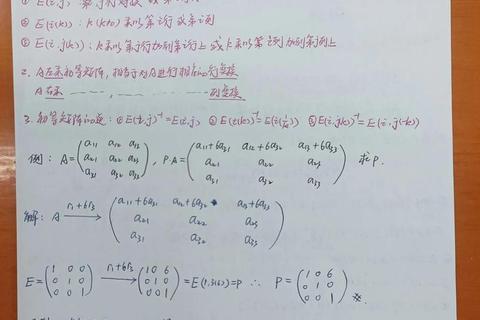 ① E(i,j): 第i行对换 或第i列
② E(i(k)): k(k≠0)乘以第i行 或第i列
③ E(i,j(k)): k乘以第j行加到第i行上 或 k乘以第i列加到第j列上
2. A左乘初等矩阵,相当于对A进行相应的行变换
A右乘 ——, —— 列变换
3. 初等矩阵的逆: ① E(i,j)⁻¹=E(i,j) ② E(i(k))⁻¹=E(i(1/k)) ③ E(i,j(k))⁻¹=E(i,j(-k))
例: A=(a11 a12 a13; a21 a22 a23; a31 a32 a33), P·A=(a11+6a31 a12+6a32 a13+6a33; a21 a22 a23; a31 a32 a33) 求P.
解: A —r1+6r3→ (a11+6a31 a12+6a32 a13+6a33; a21 a22 a23; a31 a32 a33)
E=(1 0 0; 0 1 0; 0 0 1) —r1+6r3→ (1 0 6; 0 1 0; 0 0 1)=E(1,3(6))=P ∴ P=(1 0 6; 0 1 0; 0 0 1) ※.